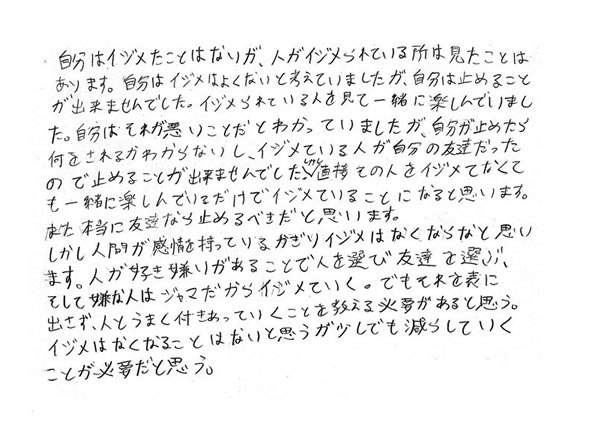 自分はイジメたことはないが、人がイジメられている所は見たことは
あります。自分はイジメはよくないと考えていましたが、自分は止めること
が出来ませんでした。イジメられている人を見て一緒に楽しんでいまし
た。自分はそれが悪いことだとわかっていましたが、自分が止めたら
何をされるかわからないし、イジメている人が自分の友達だった
ので止めることが出来ませんでした。しかし直接その人をイジメてなくて
も一緒に楽しんでいるだけでイジメていることになると思います。
また本当に友達なら止めるべきだと思います。
しかし人間が感情を持っているかぎりイジメはなくならなと思い
ます。人が好き嫌いがあることで人を選び友達を選ぶ、
そして嫌な人はジャマだからイジメていく。でもそれを表に
出さず、人とうまく付きあっていくことを教える必要があると思う。
イジメはなくなることはないと思うが少しでも減らしていく
ことが必要だと思う。